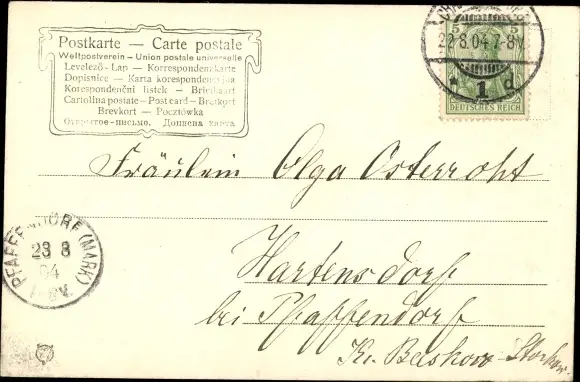 Postkarte — Carte postale
Weltpostverein — Union postale universelle
Levelező-Lap — Korrespondenzkarte
Dopisnice — Karta korespondencyjna
Korespondenční lístek — Brietkaart
Cartolina postale — Post card — Brefkort
Brevkort — Pocztówka
Открытое-письмо. Дописна карта
5 5
8.04 7-8V.
* 1 d
DEUTSCHES REICH
Fräulein Olga Osterroht
PFAFFENDORF (MARK)
23 8
04
Hartensdorf
bei Pfaffendorf
Kr. Beskow-Storkow.